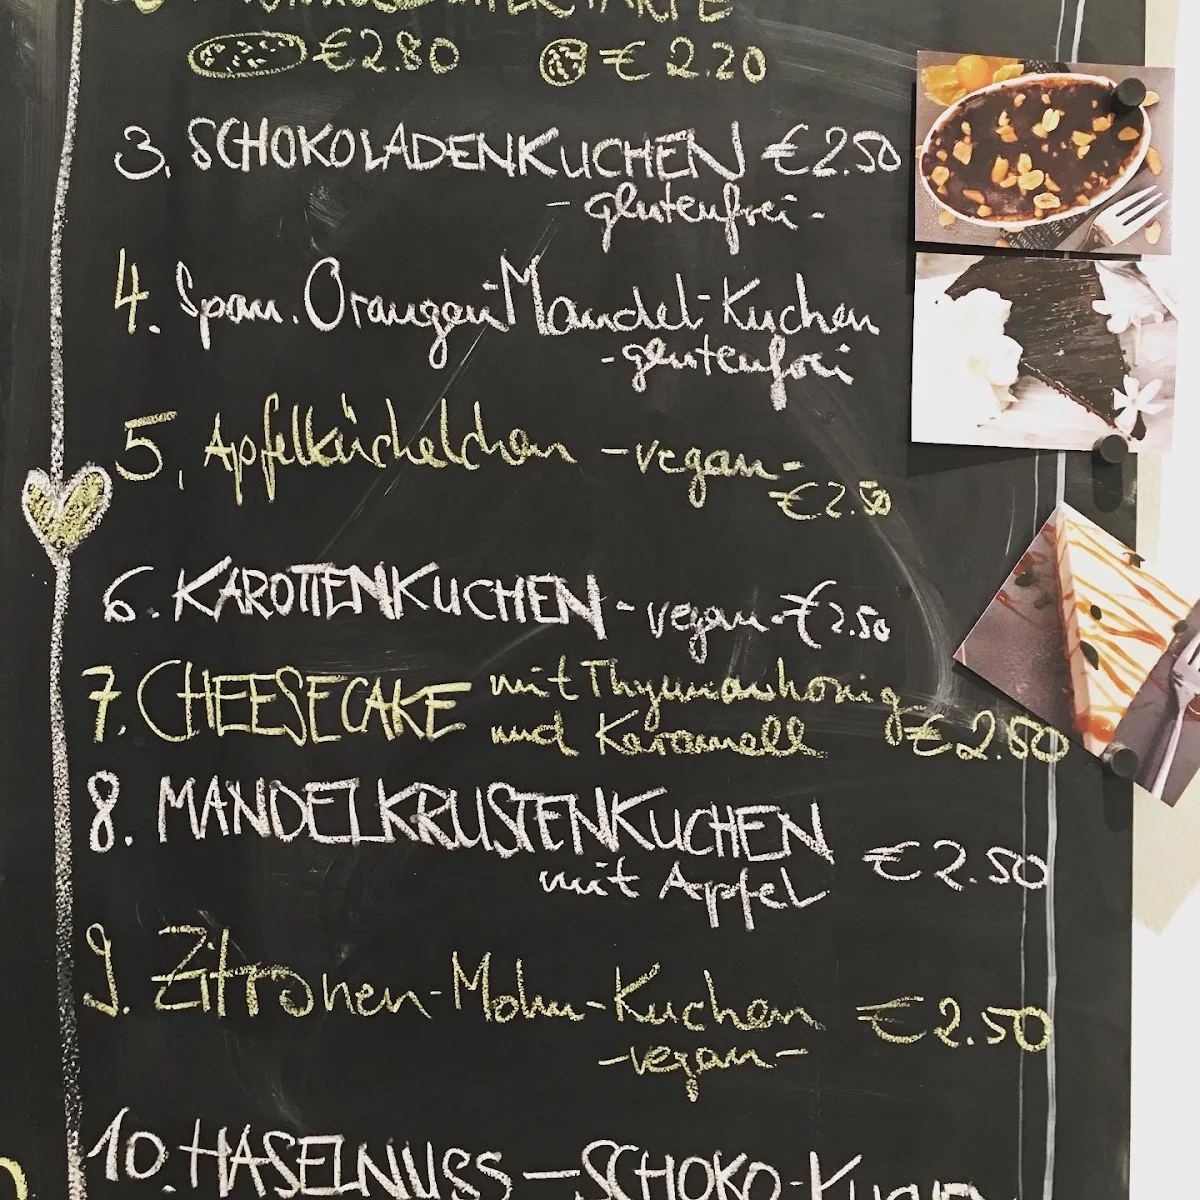 €2.80 € 2.20
3. SCHOKOLADENKUCHEN €2.50
- glutenfrei -
4. Span. Orangen-Mandel-Kuchen
- glutenfrei
5. Apfelküchelchen - vegan -
€2.50
6. KAROTTENKUCHEN - vegan - €2.50
7. CHEESECAKE mit Thymianhonig
und Karamell €2.50
8. MANDELKRUSTENKUCHEN
mit Apfel €2.50
9. Zitronen-Mohn-Kuchen €2.50
- vegan -
10. HASELNUSS - SCHOKO-KUCHEN